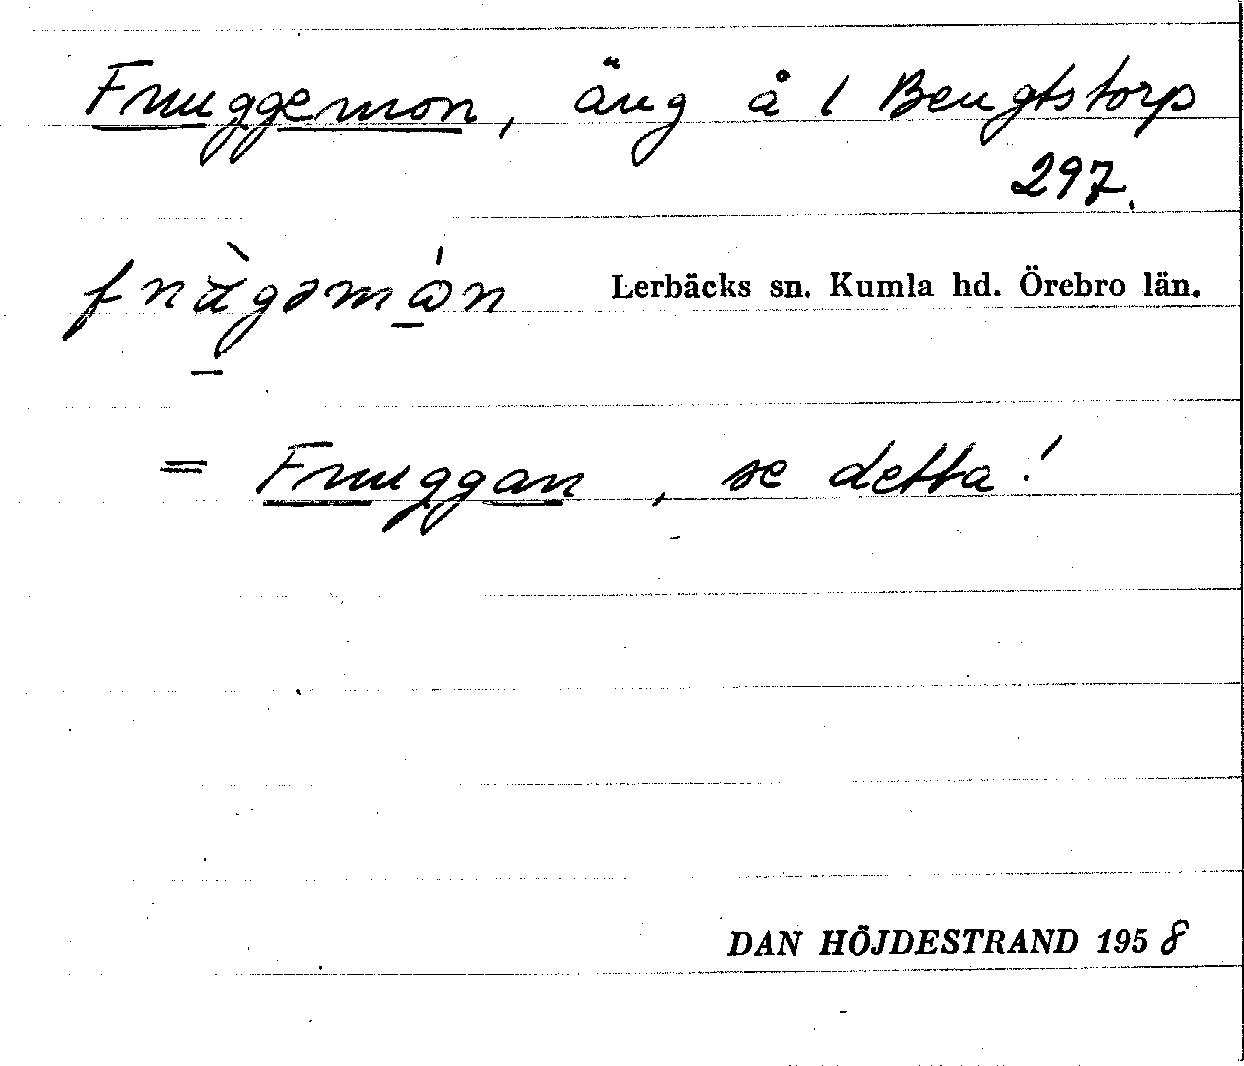 Fnuggemon, äng å 1 Bengtstorp
297.
Lerbäcks sn. Kumla hd. Örebro län.
= Fnuggan, se detta!
DAN HÖJDESTRAND 1958